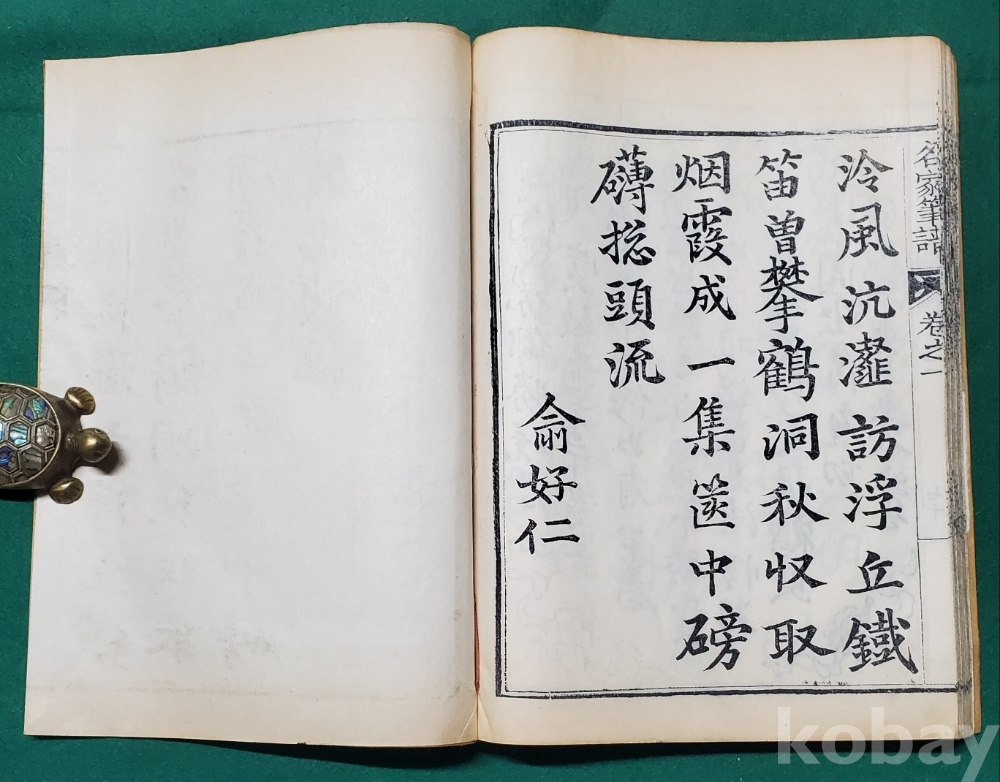 名家筆譜 卷之一
泠風沆瀣訪浮丘鐵
笛曾攀鶴洞秋収取
烟霞成一集篋中磅
礴捴頭流
俞好仁
kobay